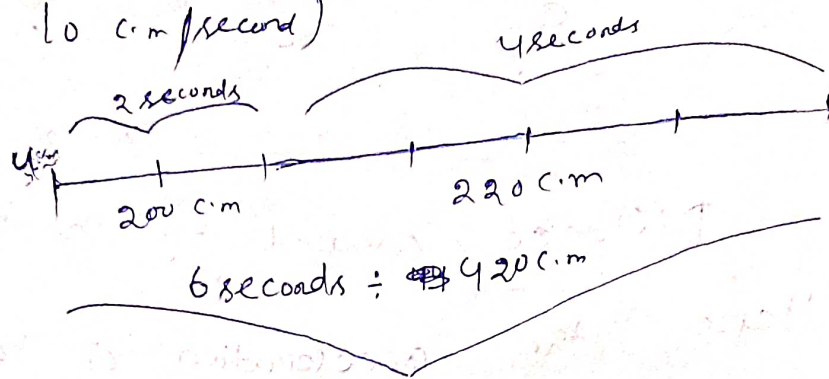 10 c.m/second)
4 seconds
2 seconds
u
200 c.m
220 c.m
6 seconds ÷ 420 c.m